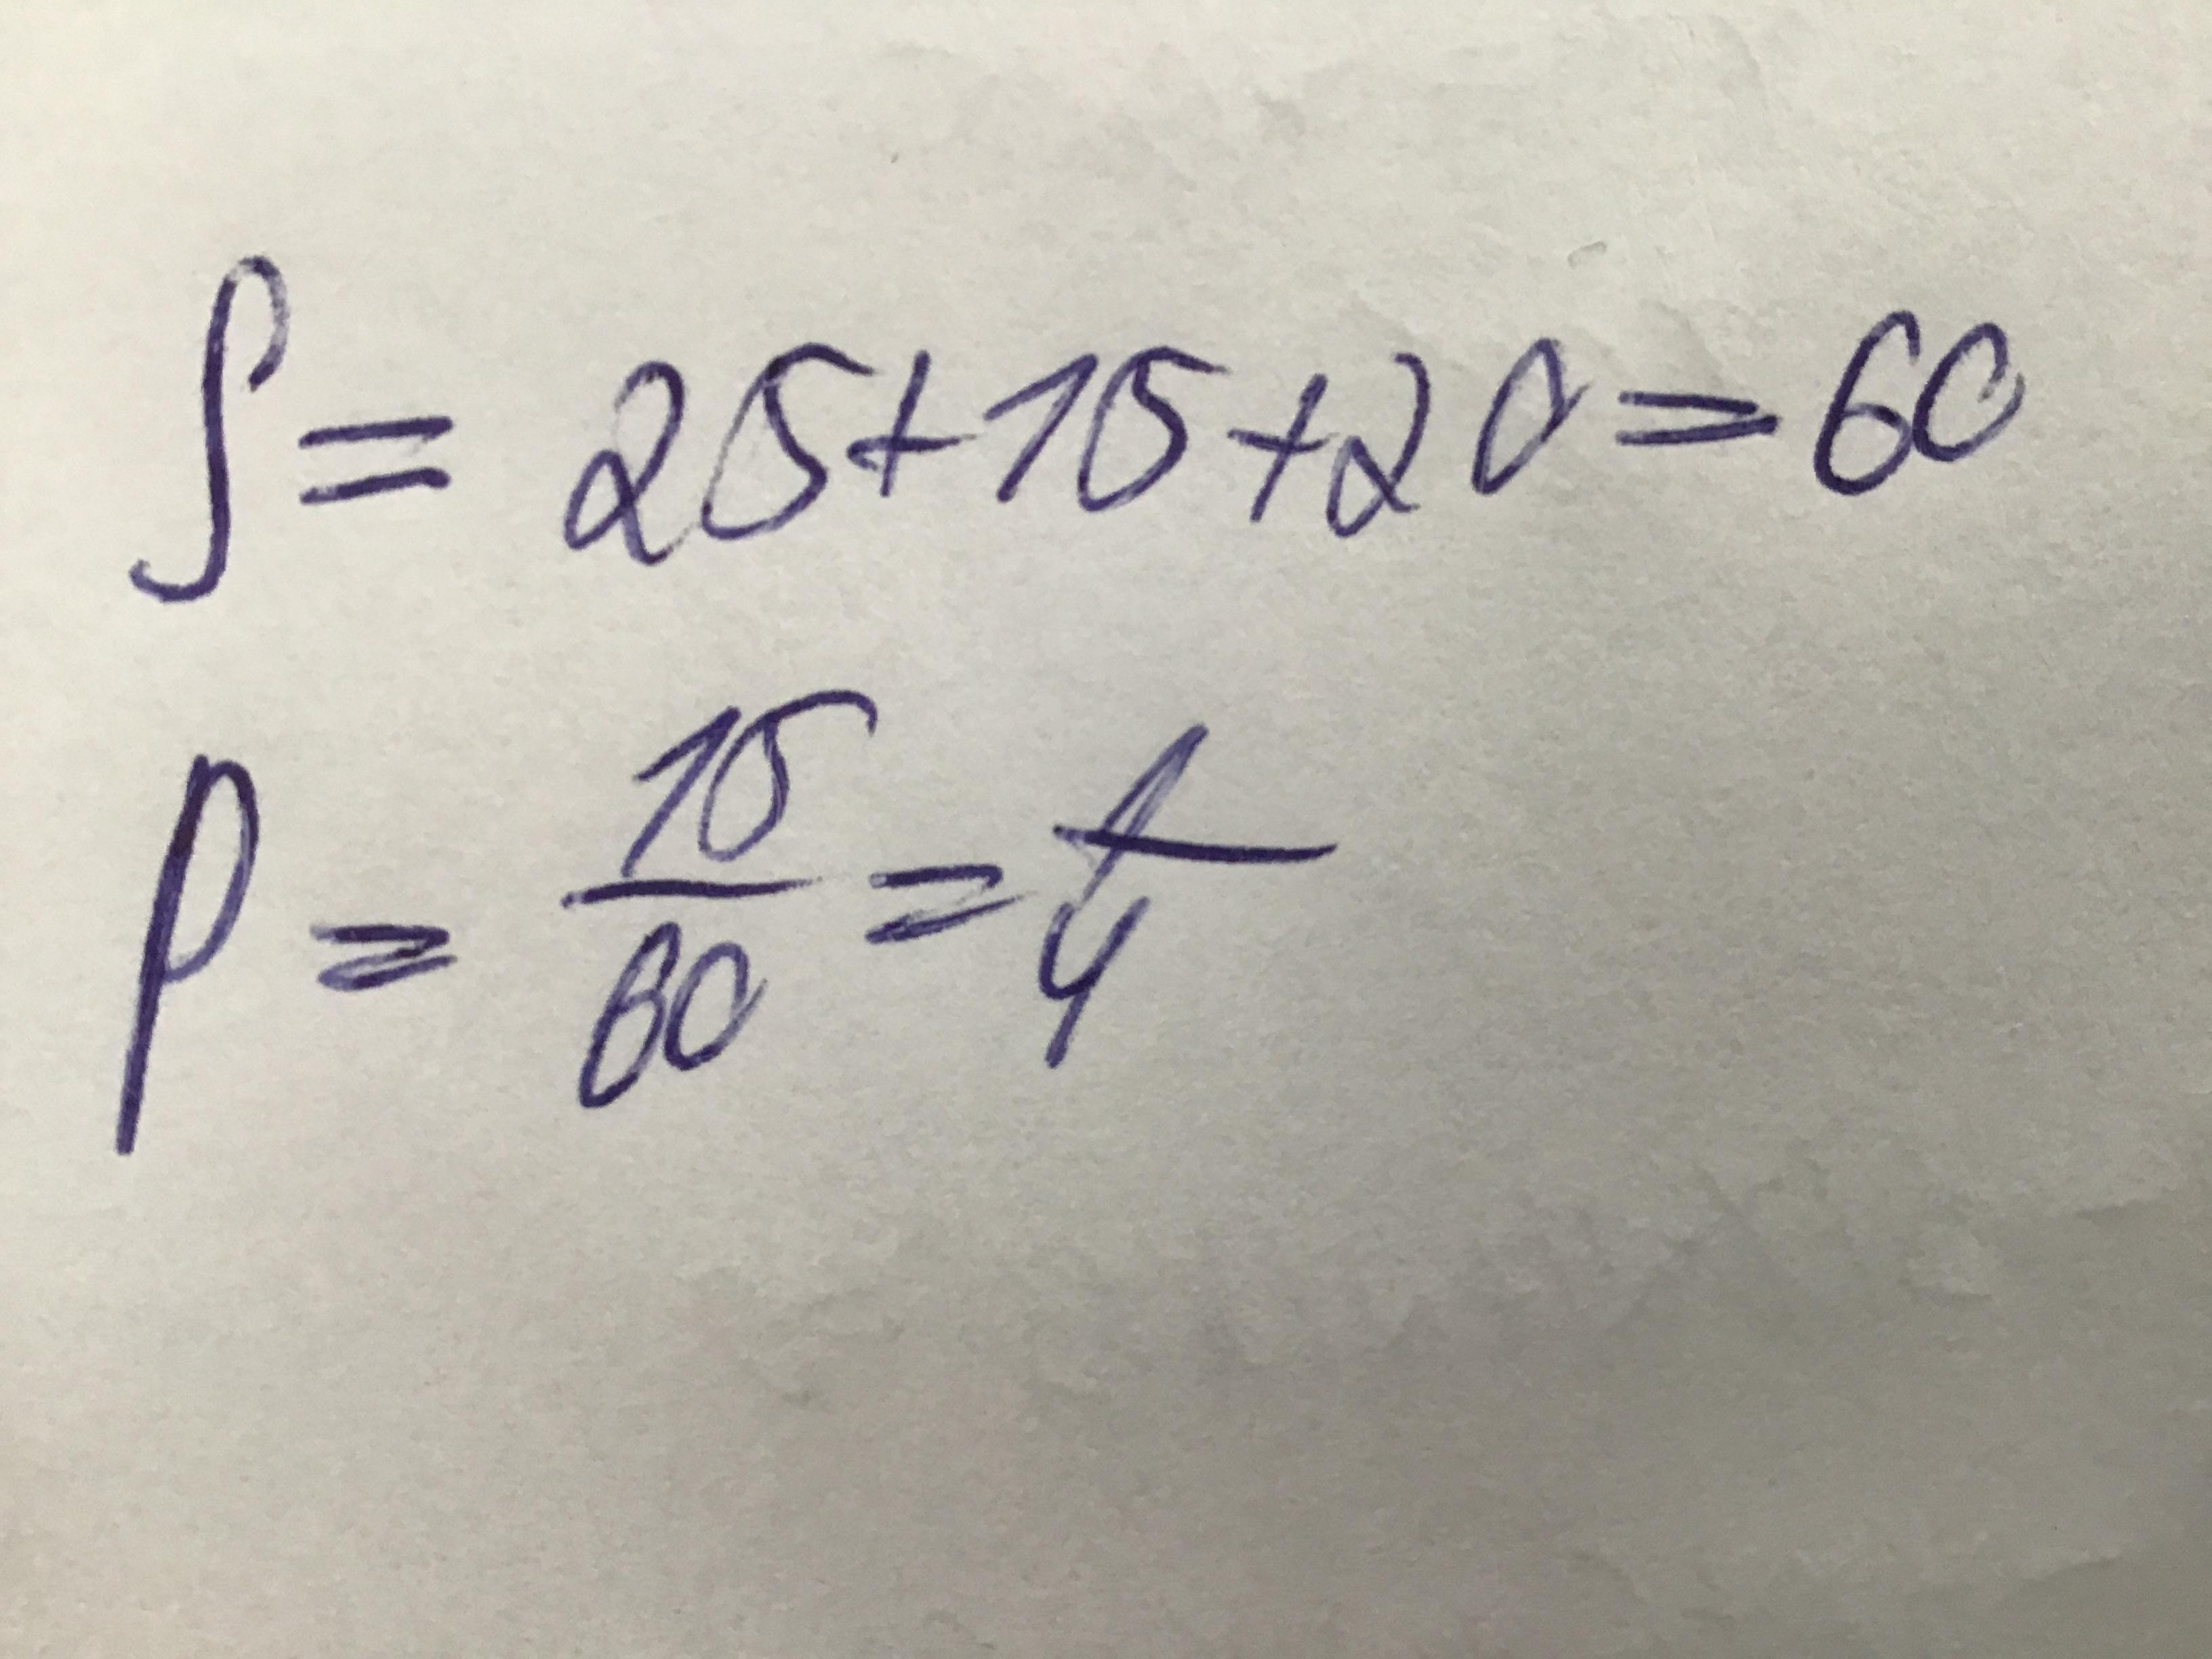 S = 25+15+20=60
P = 15/60 = 1/4